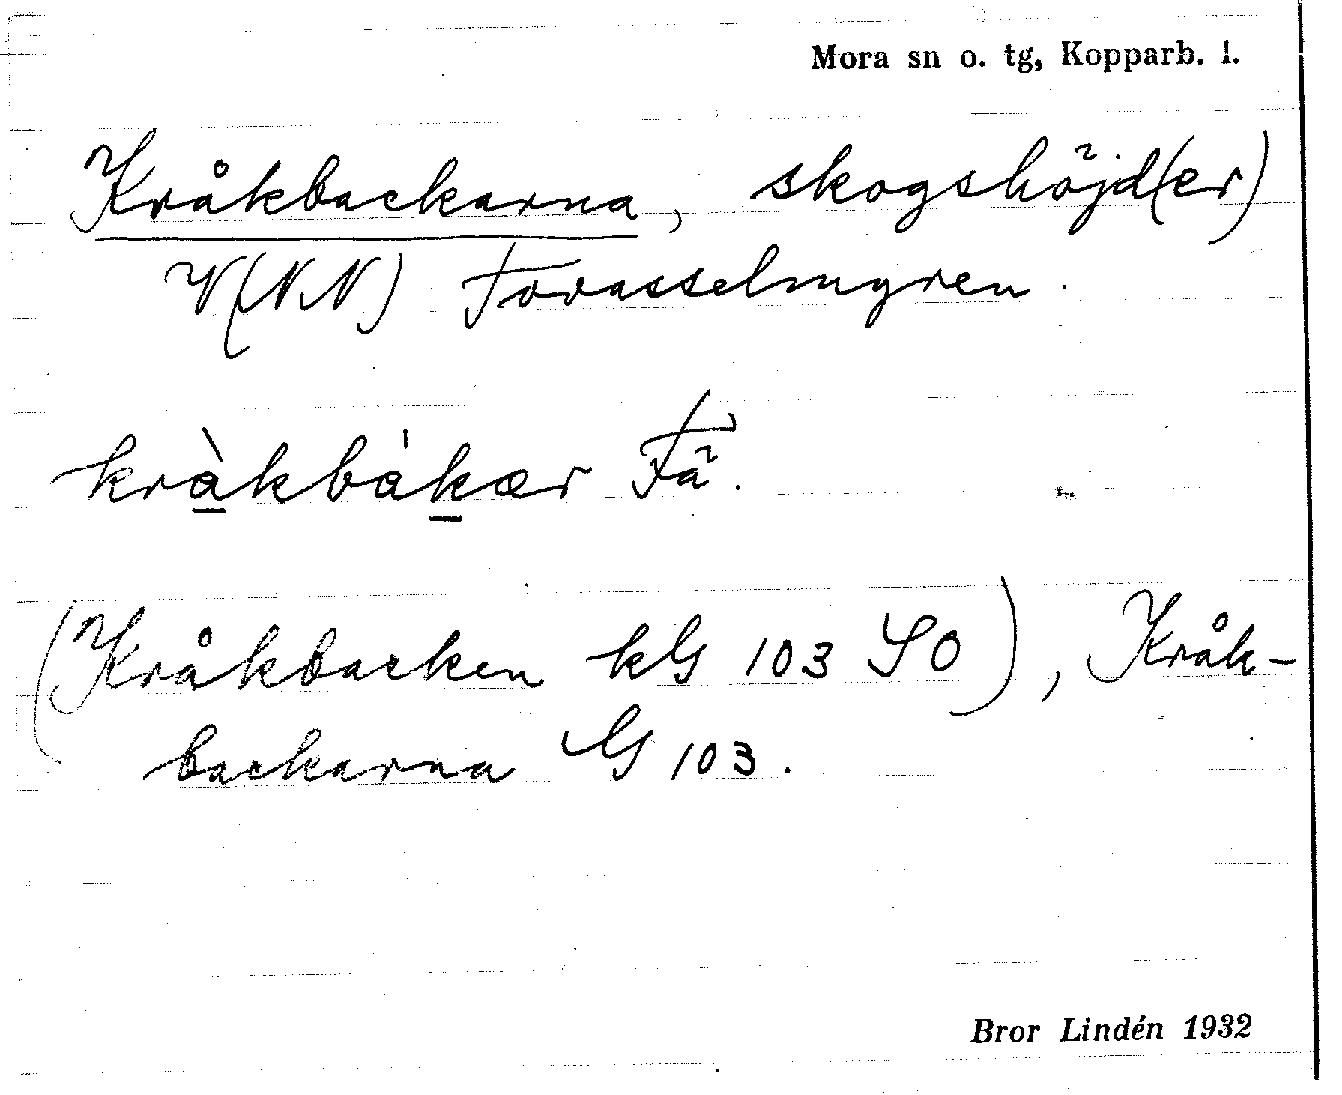 Mora sn o. tg, Kopparb. l.
Kråkbackarna, skogshöjd(er)
V(N.V) Tovasselmyren.
kràkbàkær Fä.
(Kråkbacken kG 103 SO), Kråk-
backarna G 103.
Bror Lindén 1932